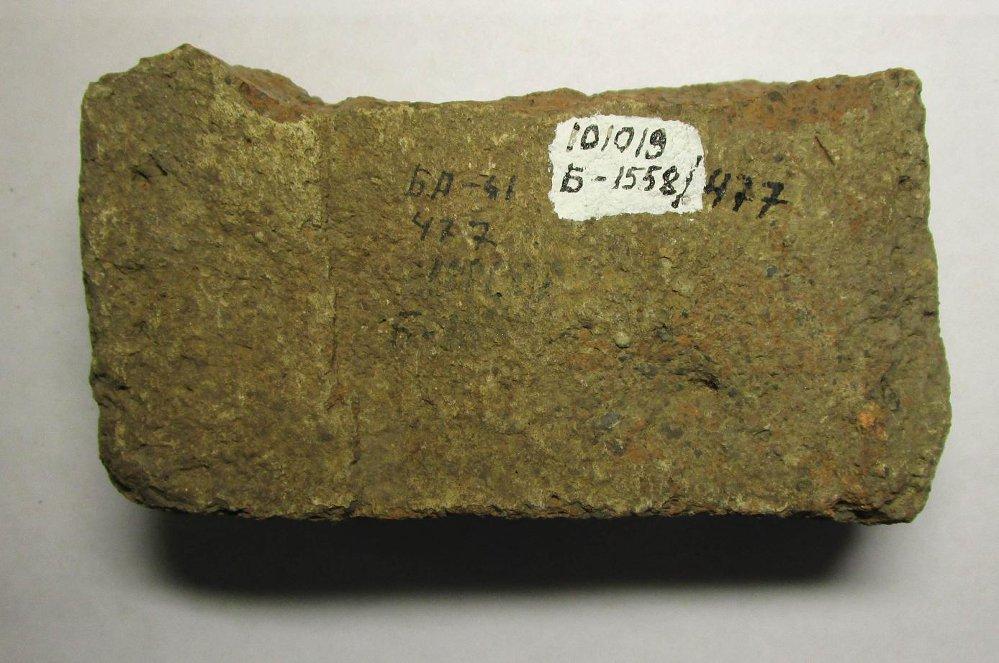 101019
Б-1558/477
БА-41
477